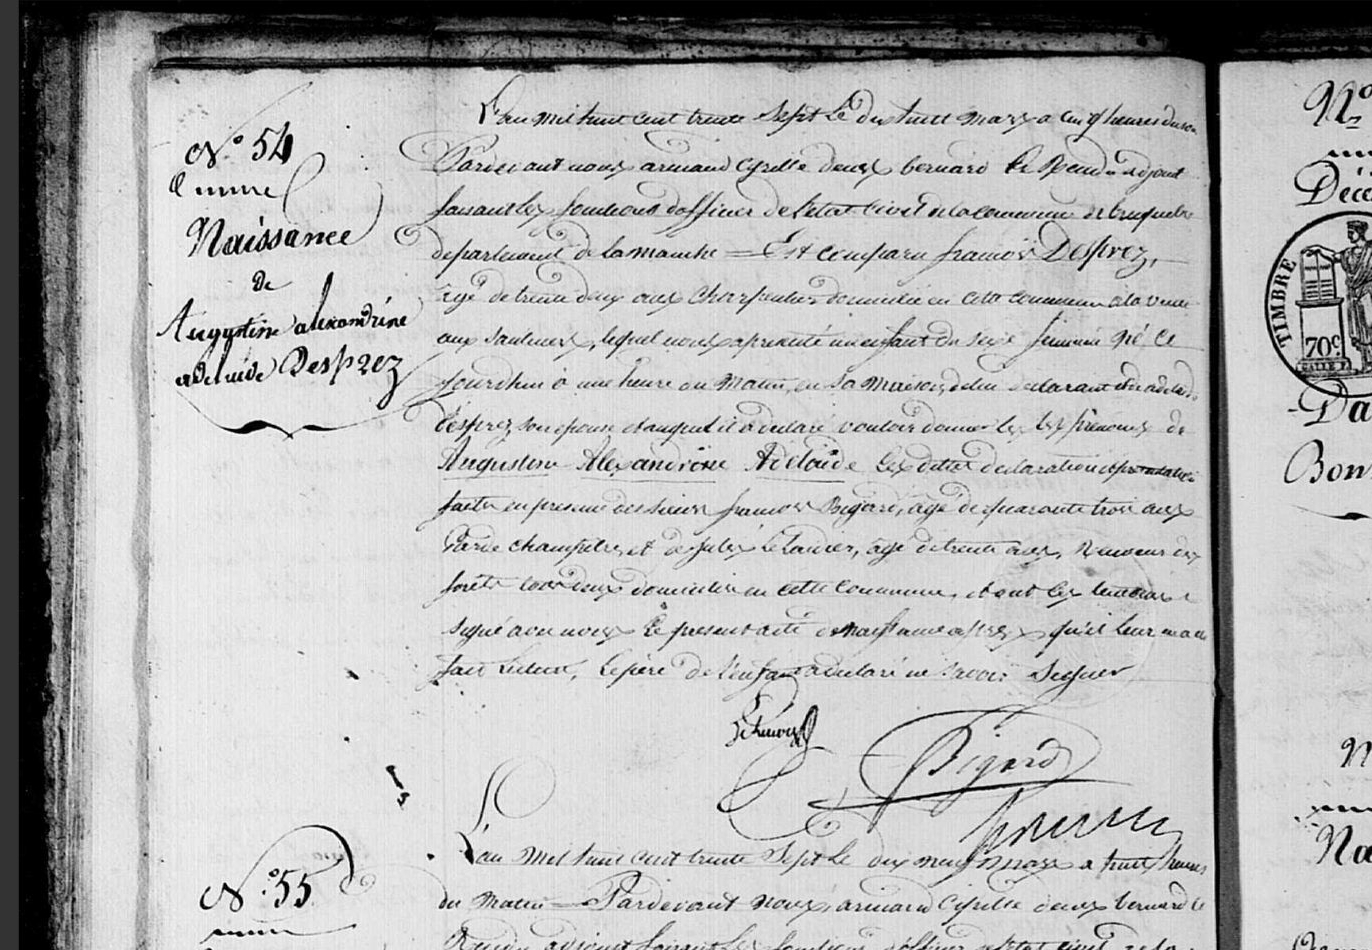 N.° 54
Naissance
de
Augustine alexandrine
adelaide Desprez
L'an mil huit cent trente Sept le dix huit Mars a cinq heures du soir
Pardevant nous armand Cyrille deux bernard adjoint
faisant les fonctions d'officier de l'etat Civil de la commune de bruquebec
departement de la manche = Est comparu francois Desprez,
agé de trente deux ans Charpentier domicilié en cette commune
lequel nous a presenté un enfant du sexe feminin né Ce
jourdhui à une heure du Matin, en sa Maison, de lui declarant et de
Desprez son epouse et auquel il a declaré vouloir donner les prénoms de
Augustine Alexandrine Adelaïde Les dites declaration et presentation
faites en presence des Sieurs francois Bigard, agé de quarante trois ans
Garde champêtre, et de jules agé de trente ans,
forêts tous deux domiciliés en cette Commune, et ont les temoins
signé avec nous Le present acte de naissance apres qu'il leur en a
fait Lecture, Le pere de l'enfant a declaré ne Savoir Signer
Bigard
N.° 55
L'an Mil huit cent trente Sept Le dix neuf Mars a huit heures
du Matin = Pardevant Nous, armand Cyrille deux bernard le
adjoint faisant les fonctions d'officier de l'etat civil de la
N°
Déc
TIMBRE
70c
Da
Bon
N
Na